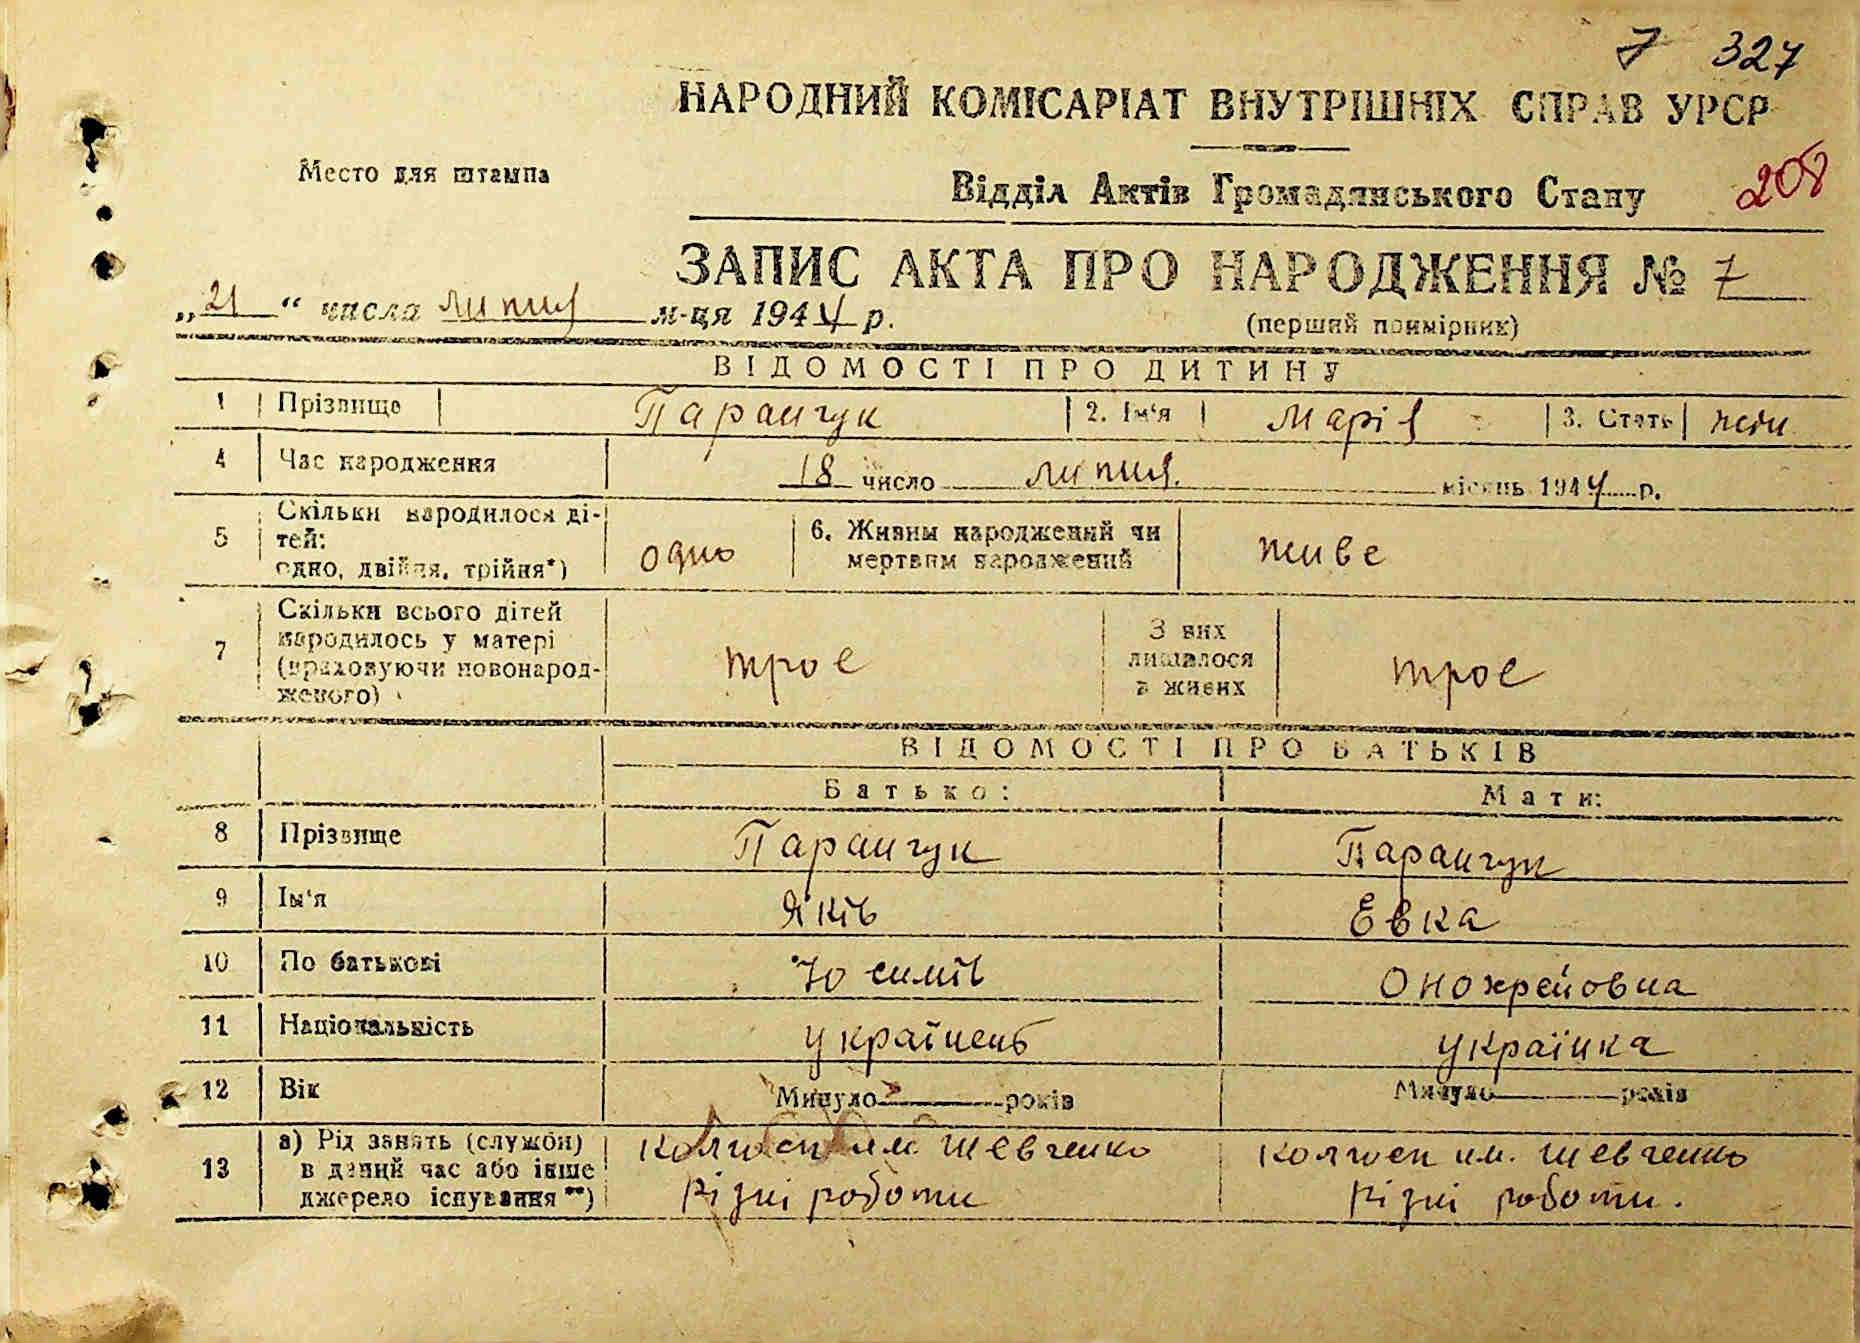 7 327
НАРОДНИЙ КОМІСАРІАТ ВНУТРІШНІХ СПРАВ УРСР
Место для штампа
Відділ Актів Громадянського Стану 208
ЗАПИС АКТА ПРО НАРОДЖЕННЯ № 7
„21“ числа липня м-ця 1944 р.
(перший примірник)
ВІДОМОСТІ ПРО ДИТИНУ
1 Прізвище Паранчук 2. Ім'я Марія 3. Стать жін
4 Час народження 18 число липня місяць 1944 р.
5 Скільки народилося ді-
тей:
одно, двійня, трійня*) одно 6. Живим народжений чи
мертвим народжений живе
7 Скільки всього дітей
народилось у матері
(враховуючи новонарод-
женого) троє З них
лишалося
в живих троє
ВІДОМОСТІ ПРО БАТЬКІВ
Батько: Мати:
8 Прізвище Паранчук Паранчук
9 Ім'я Яків Евка
10 По батькові Юсимів Онохрейовна
11 Національність українець українка
12 Вік Минуло років Минуло років
13 а) Рід занять (служби)
в даний час або інше
джерело існування**) колгосп им. Шевченко колгосп им. Шевченко
Різні роботи Різні роботи.